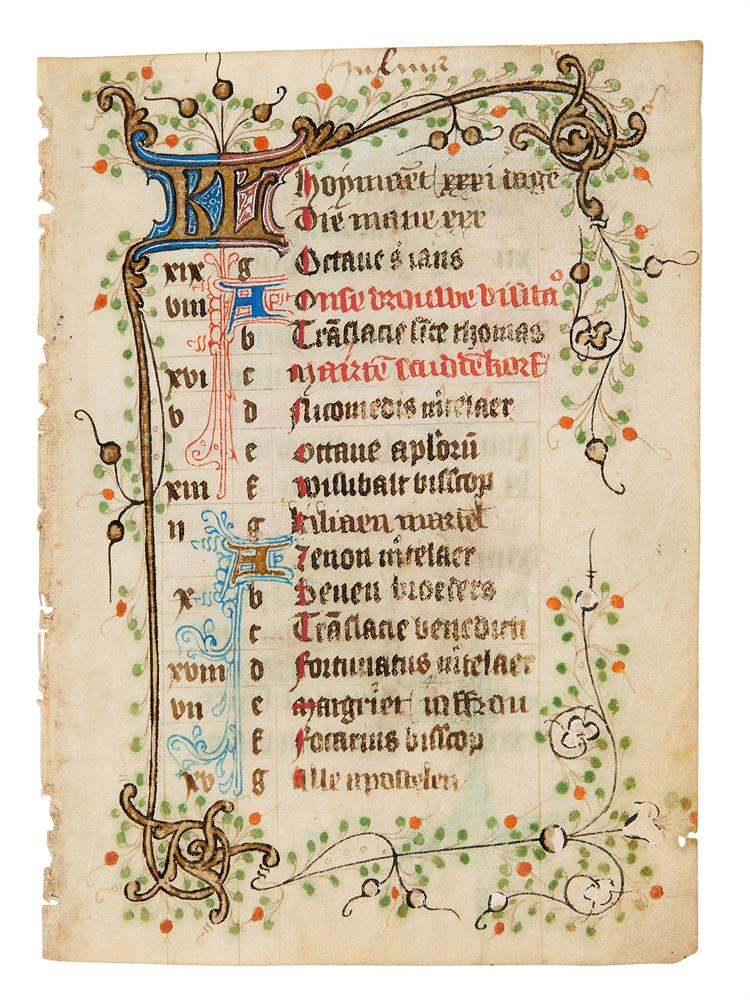 KL Hoymaent xxxi dage
Die mane xxx
xix g Octaue s ians
viii A Onse vrouwe visita
b Tra͞slacie s͞te thomas
xvi c Marte͞
v d Nicomedis m͞telaer
e Octaue ap͞loru͞
xiii f Wilibalt bisscop
ij g Kiliaen martel
A Zenon m͞telaer
x b Seuen broeders
c Tra͞slacie benedicti
xviii d Fortunatus m͞telaer
vii e Margriet iuffrou
f Focarius bisscop
xv g Alle apostelen